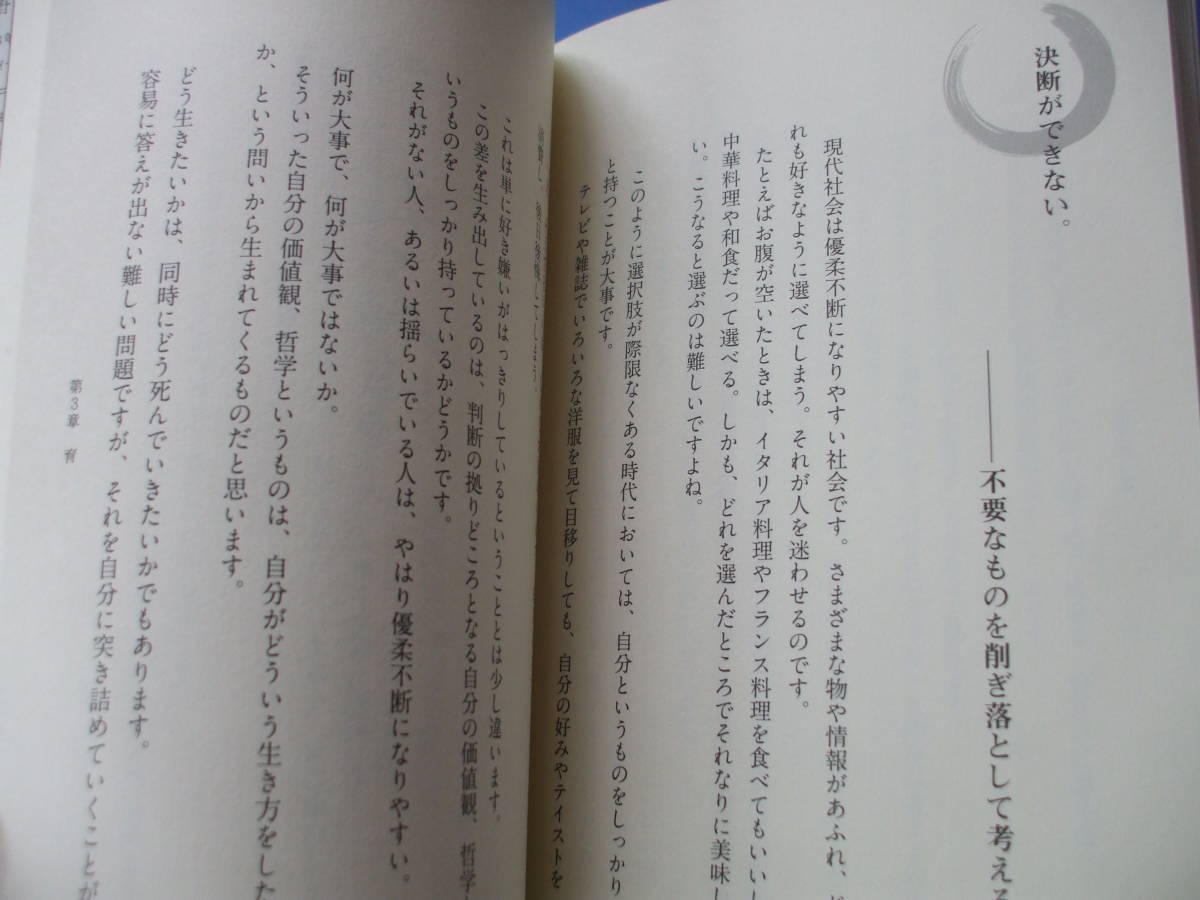 決断ができない。
――不要なものを削ぎ落として考える
現代社会は優柔不断になりやすい社会です。さまざまな物や情報があふれ、ど
れも好きなように選べてしまう。それが人を迷わせるのです。
たとえばお腹が空いたときは、イタリア料理やフランス料理を食べてもいいし
中華料理や和食だって選べる。しかも、どれを選んだところでそれなりに美味し
い。こうなると選ぶのは難しいですよね。
このように選択肢が際限なくある時代においては、自分というものをしっかり
と持つことが大事です。
テレビや雑誌でいろいろな洋服を見て目移りしても、自分の好みやテイストを
後日後悔してしまう。
これは単に好き嫌いがはっきりしているということとは少し違います。
この差を生み出しているのは、判断の拠りどころとなる自分の価値観、哲学と
いうものをしっかり持っているかどうかです。
それがない人、あるいは揺らいでいる人は、やはり優柔不断になりやすい。
何が大事で、何が大事ではないか。
そういった自分の価値観、哲学というものは、自分がどういう生き方をした
か、という問いから生まれてくるものだと思います。
どう生きたいかは、同時にどう死んでいきたいかでもあります。
容易に答えが出ない難しい問題ですが、それを自分に突き詰めていくことが
第3章 育